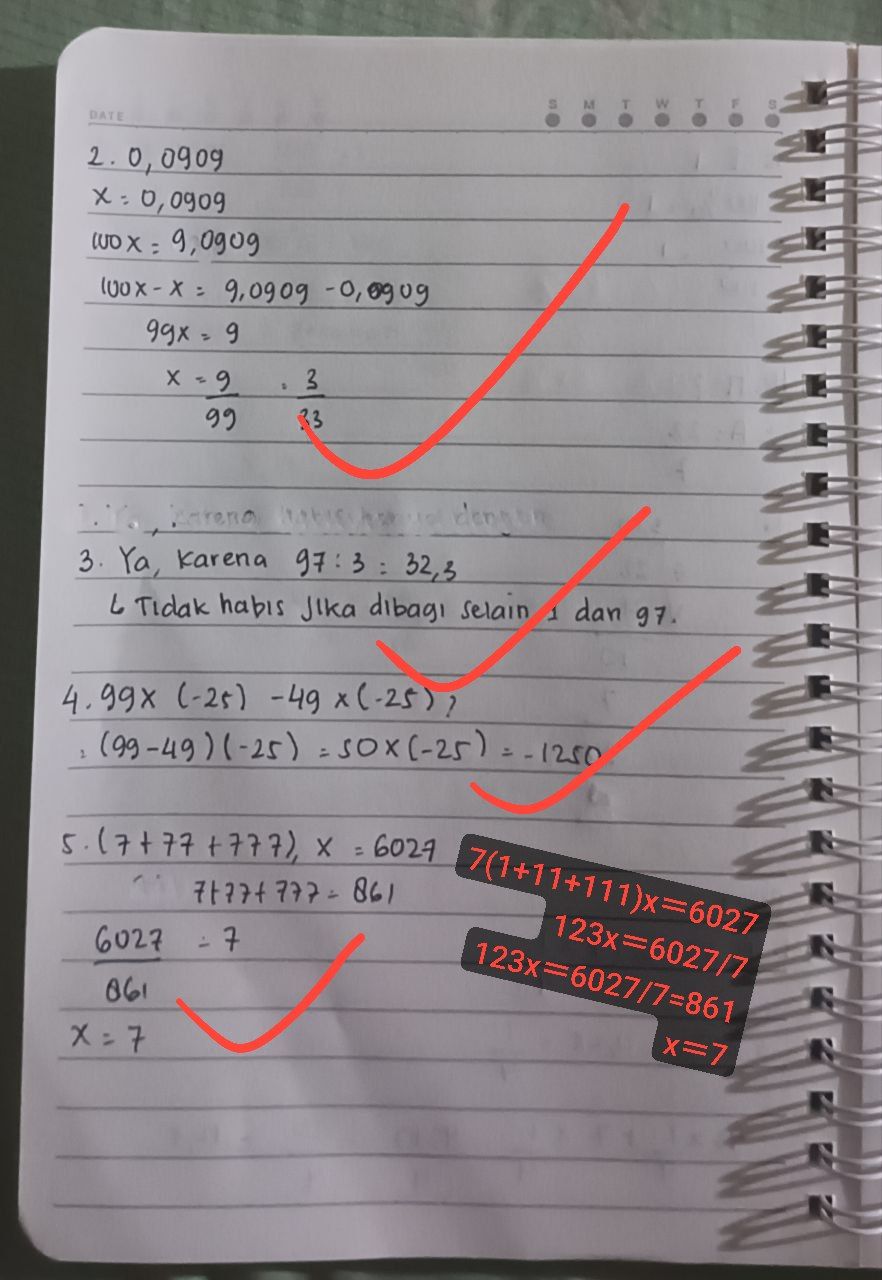 DATE
S M T W T F S
2. 0,0909
x = 0,0909
100x = 9,0909
100x - x = 9,0909 - 0,0909
99x = 9
x = 9/99 = 3/33
karena
3. Ya, karena 97 : 3 = 32,3
↳ Tidak habis jika dibagi selain 1 dan 97.
4. 99 x (-25) - 49 x (-25) ?
= (99-49) (-25) = 50 x (-25) = -1250
5. (7+77+777), x = 6027
7+77+777 = 861
6027/861 = 7
x = 7
7(1+11+111)x=6027
123x=6027/7
123x=6027/7=861
x=7